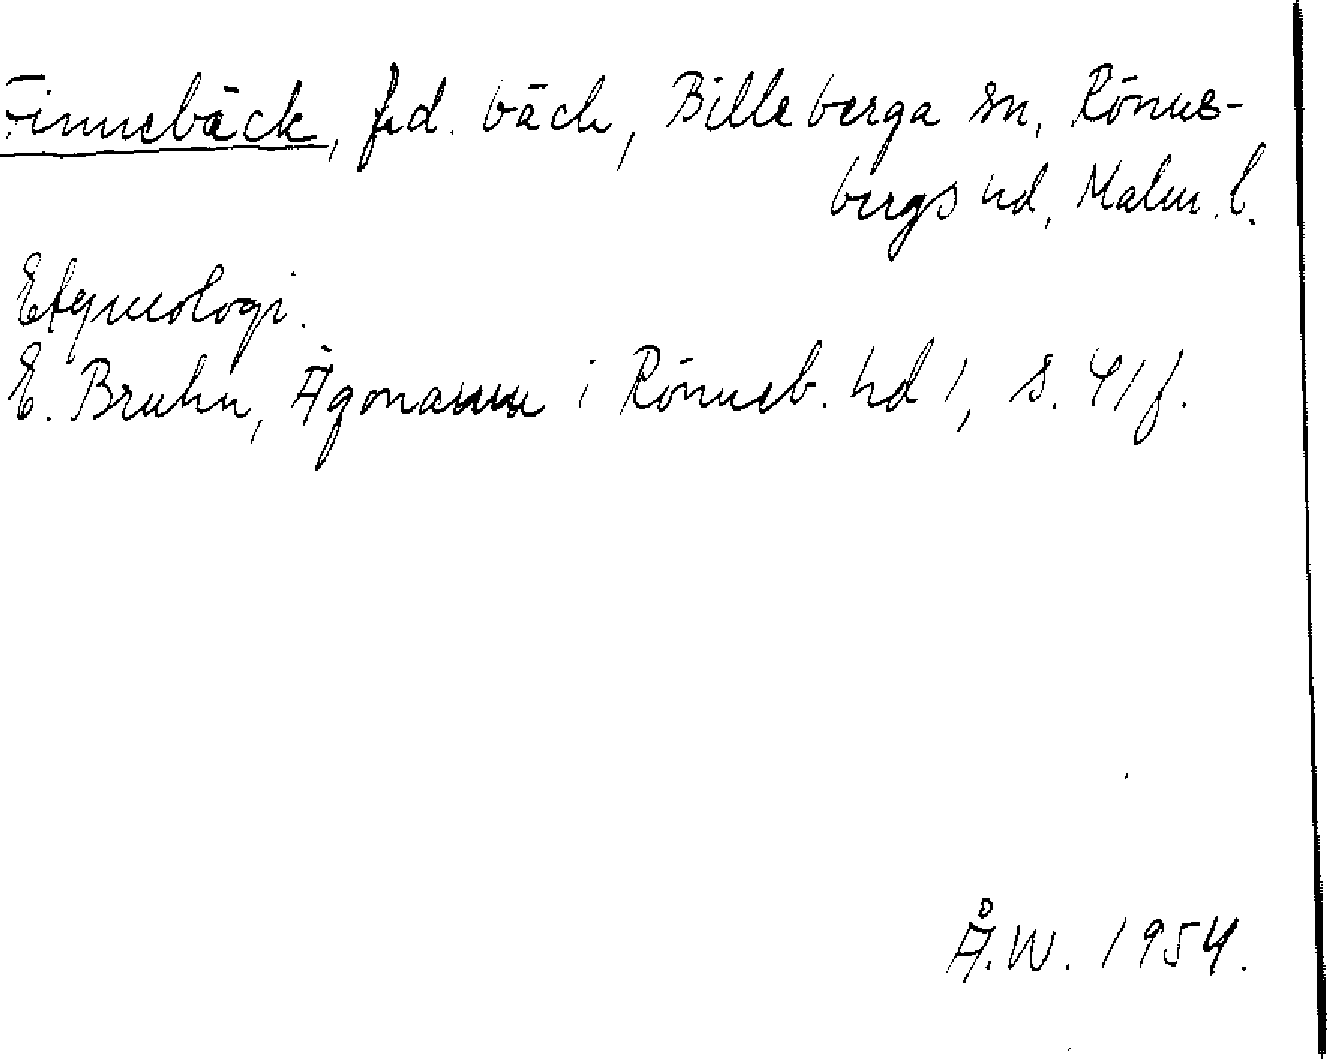 Finnebäck, f.d. bäck, Billeberga sn, Rönne-
bergs hd, Malm. l.
Etymologi.
E. Bruhn, Ägonamn i Rönneb. hd 1, s. 41 f.
Å.W. 1954.